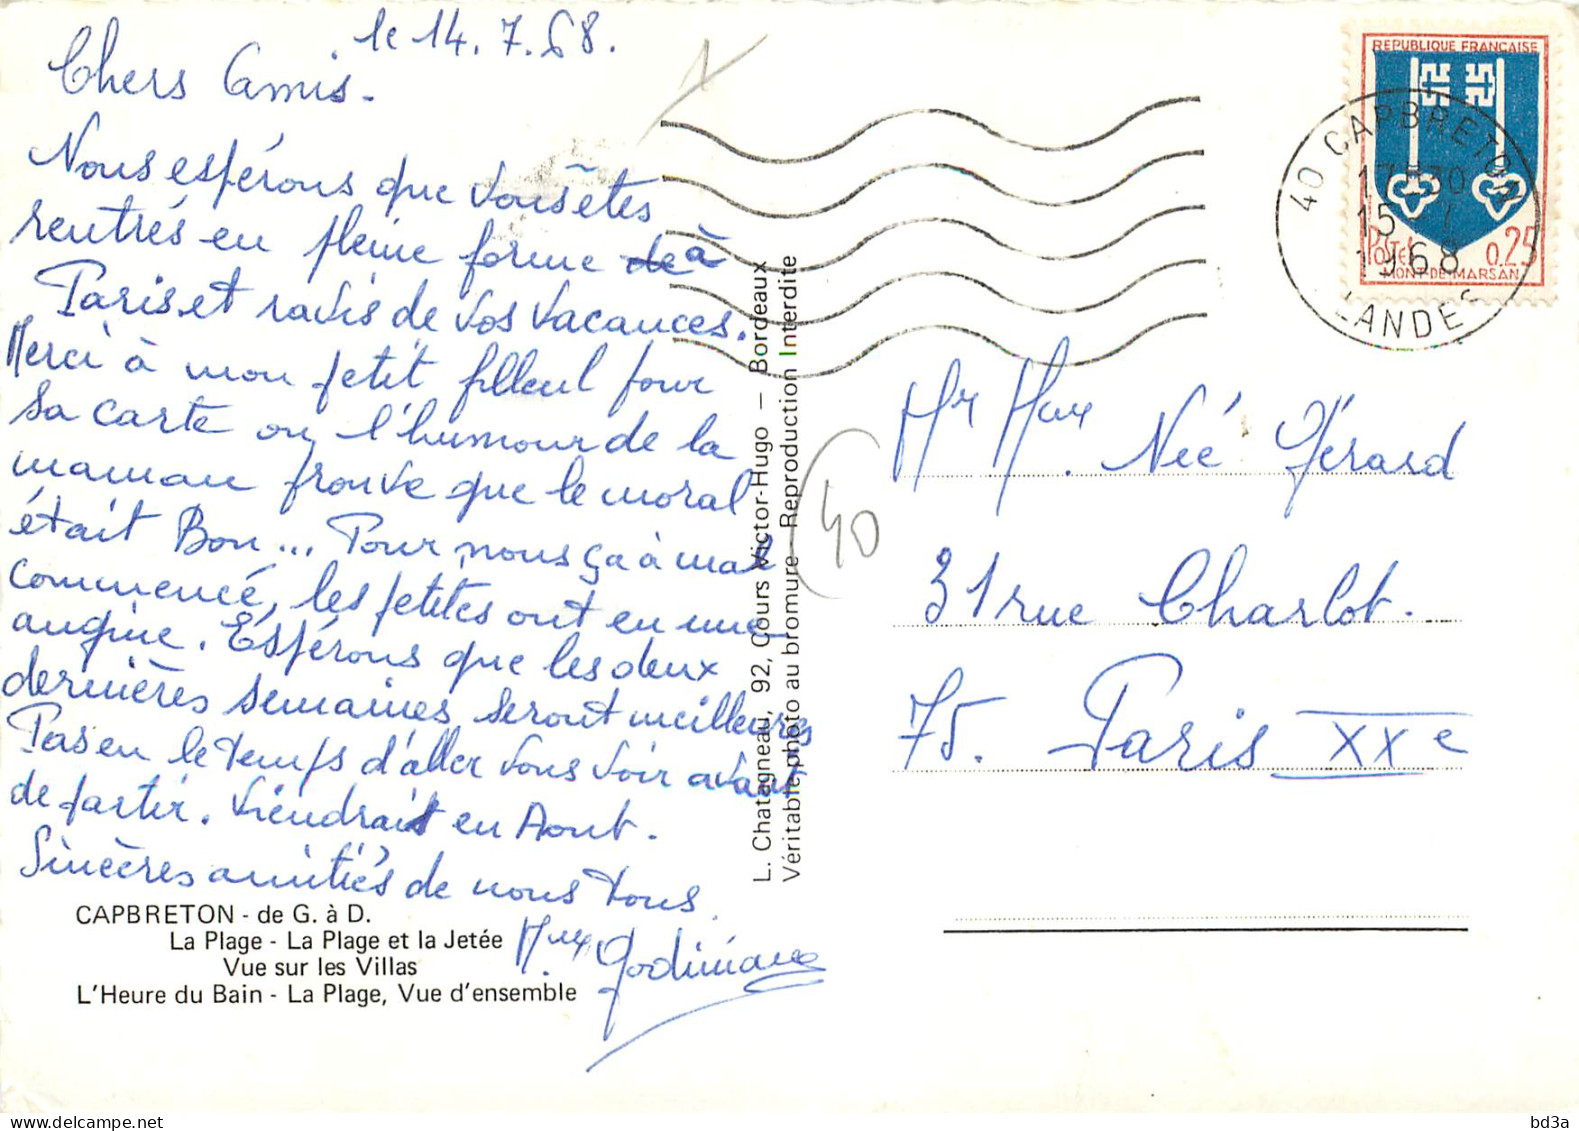 le 14.7.68.
Chers Amis.
Nous espérons que vous êtes
rentrés en pleine forme à
Paris et ravis de vos vacances.
Merci à mon petit filleul pour
sa carte ou l'humour de la
maman prouve que le moral
était Bon... Pour nous ça à mal
commencé, les petites ont eu une
angine. Espérons que les deux
dernières semaines seront meilleures
Pas eu le temps d'aller vous voir avant
de partir. Viendrais en Aout.
Sincères amitiés de nous tous.
Mme
CAPBRETON - de G. à D.
La Plage - La Plage et la Jetée
Vue sur les Villas
L'Heure du Bain - La Plage, Vue d'ensemble
L. Chatagneau, 92, Cours Victor-Hugo — Bordeaux
Véritable photo au bromure - Reproduction Interdite
40
REPUBLIQUE FRANÇAISE
Postes 0,25
MONT-DE-MARSAN
40 CAPBRETON
15
1968
LANDES
Mr Mme. Née Gérard
31 rue Charlot.
75. Paris XXe
delcampe.net
bd3a